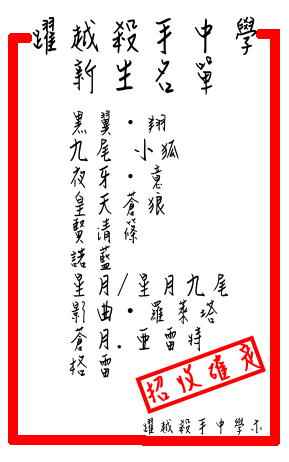 躍越殺手中學
新生名單
黑翼·翔
九尾 小狐
夜牙·意
皇天蒼狼
賢清篠
諾藍
星月/星月九尾
影曲·羅萊塔
蒼月.亜雷特
格雷
招收確定
躍越殺手中學示